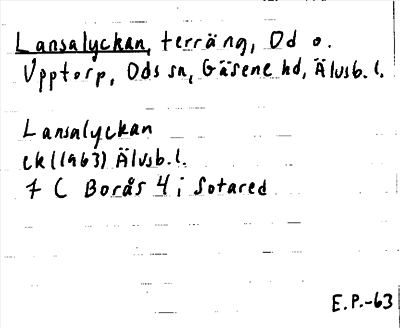 Lansalyckan, terräng, Od o.
Upptorp, Ods sn, Gäsene hd, Älvsb. l.
Lansalyckan
ek (1963) Älvsb. l.
7 C Borås 4 i Sotared
E.P.-63